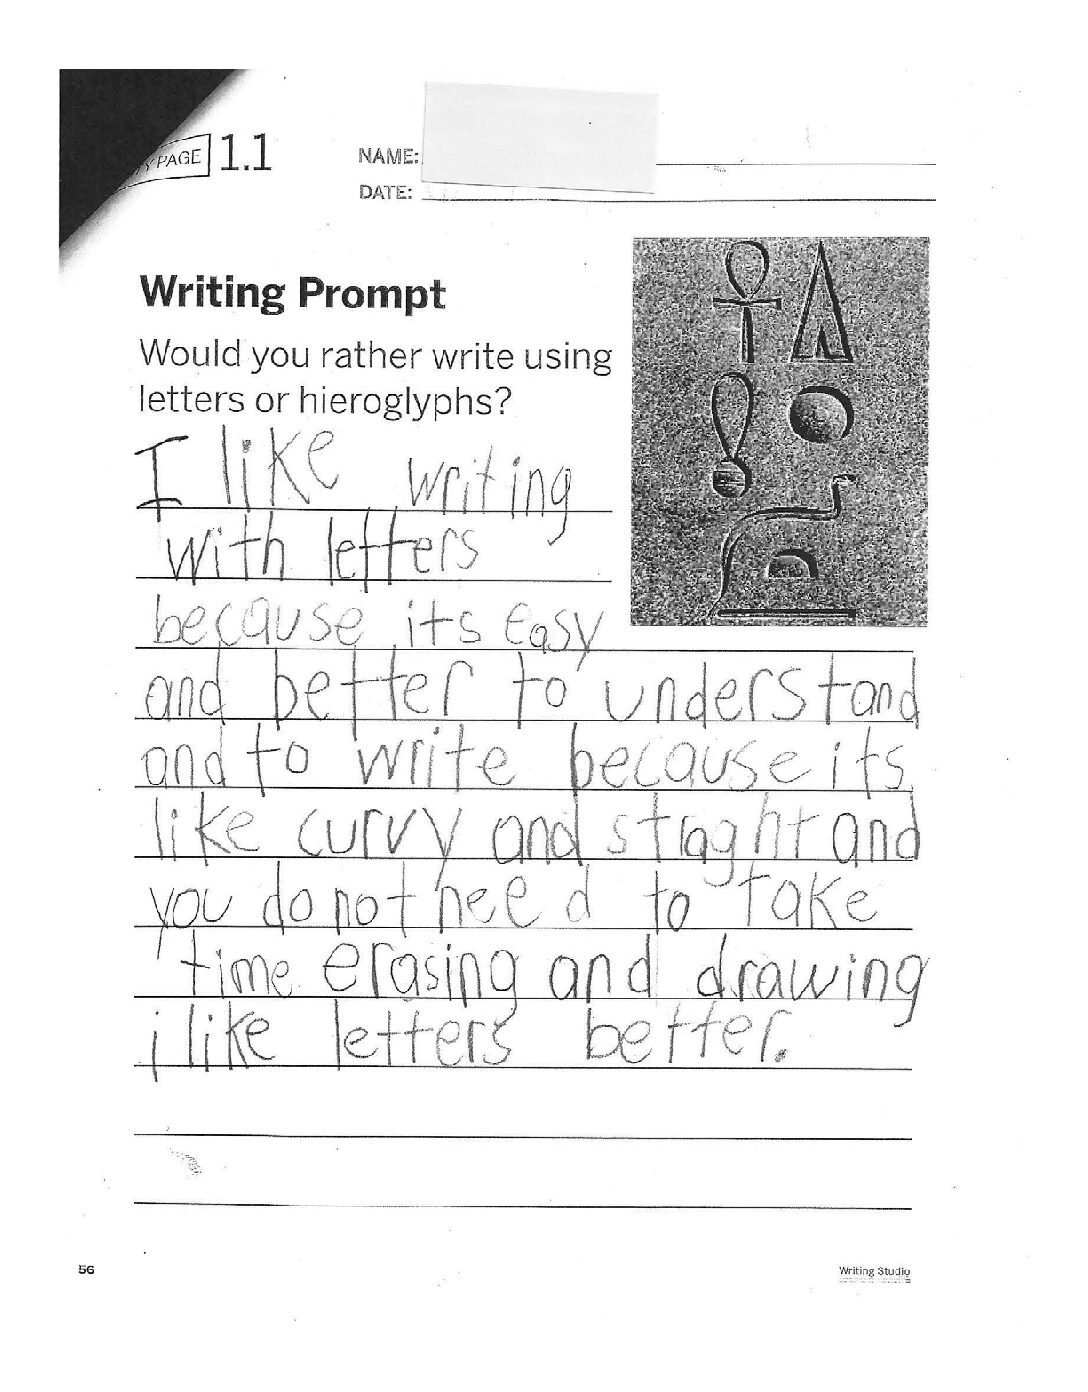 PAGE 1.1
NAME:
DATE:
Writing Prompt
Would you rather write using
letters or hieroglyphs?
I like writing
with letters
because its easy
and better to understand
and to write because its
like curvy and straght and
you do not need to take
time erasing and drawing
i like letters better.
56
Writing Studio